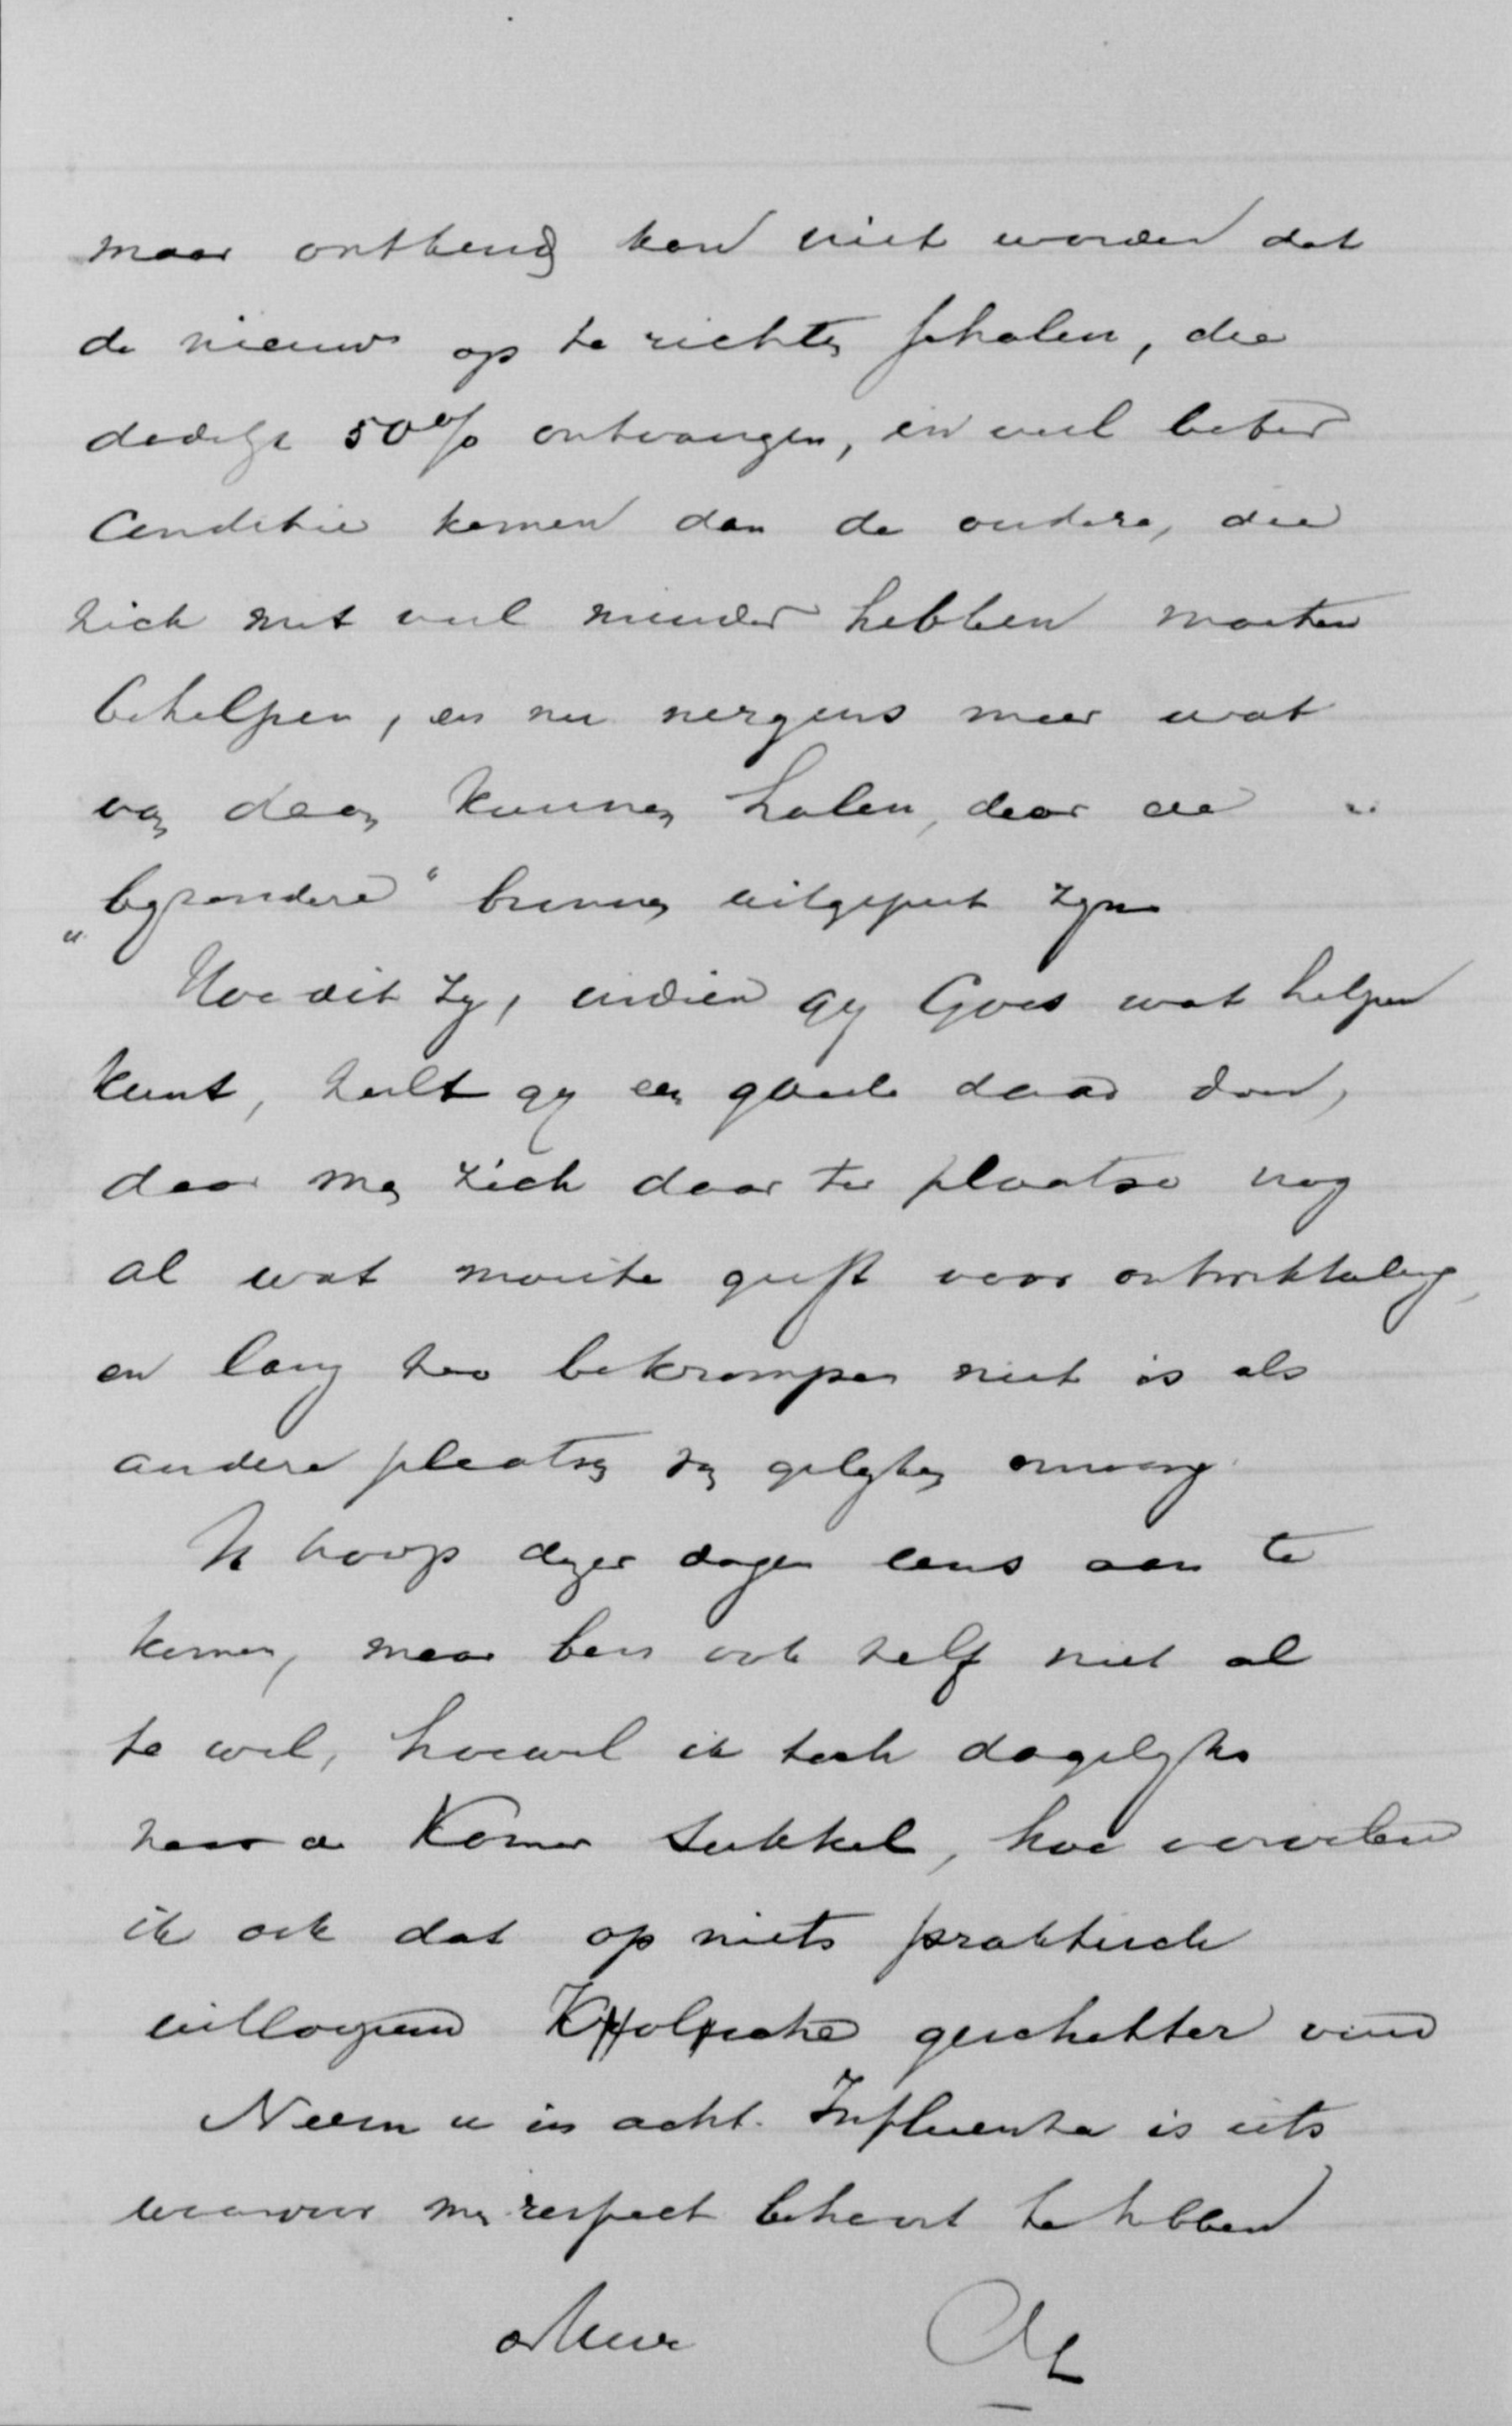 maar ontkend kan niet worden dat
de nieuw op te richten scholen, die
dadelijk 50% ontvangen, in veel beter
Conditie komen dan de oudere, die
zich met veel minder hebben moeten
behelpen, en nu nergens meer wat
van daan kunnen halen, daar de
„byzondere" bronnen uitgeput zyn
Hoe dit zy, indien gy Goes wat helpen
kunt, zult gy een goede daad doen,
daar men zich daar ter plaatse nog
al wat moeite geeft voor ontwikkeling,
en lang zoo bekrompen niet is als
andere plaatsen van gelyken omvang.
Ik hoop dezer dagen eens aan te
komen, maar ben ook zelf niet al
te wel, hoewel ik toch dagelyks
naar de Kamer sukkel, hoe vervelend
ik ook dat op niets praktisch
uitloopend geschetter vind
Neem u in acht. Influenza is iets
waarvoor men respect behoort te hebben